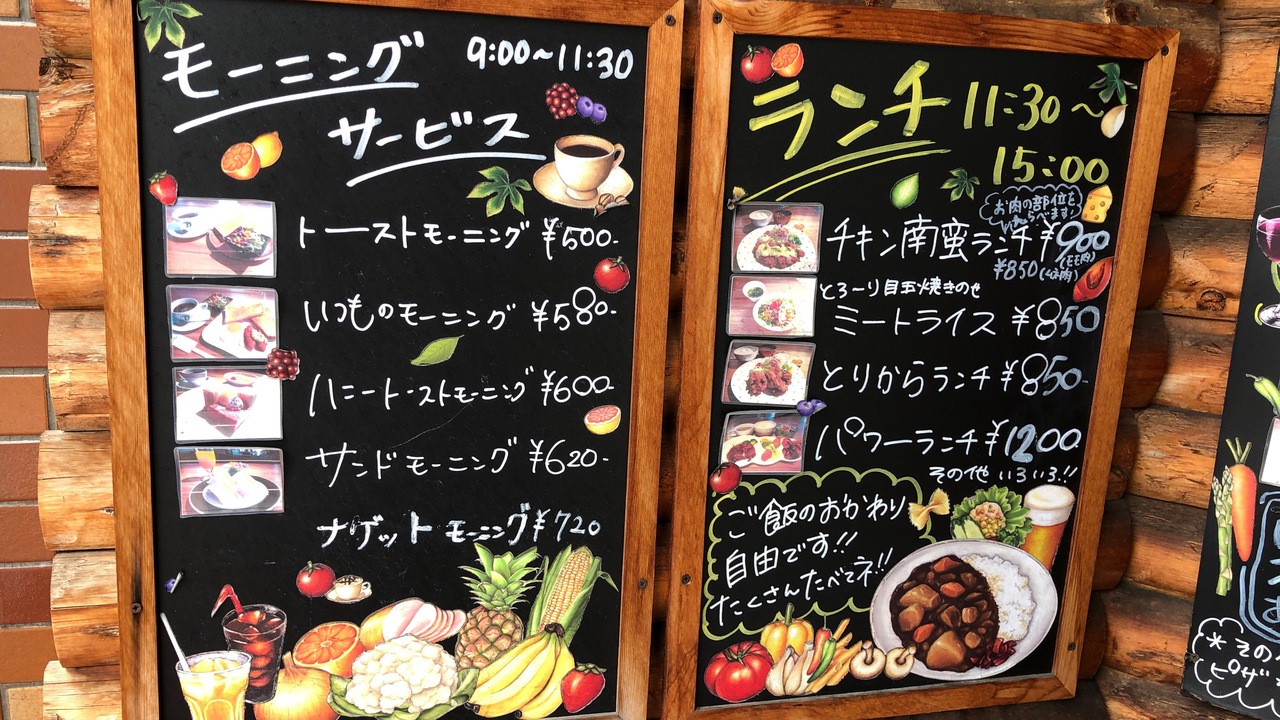 モーニング 9:00~11:30
サービス
トーストモーニング ¥500-
いつものモーニング ¥580-
ハニートーストモーニング ¥600-
サンドモーニング ¥620-
ナゲットモーニング ¥720
ランチ 11:30~
15:00
お肉の部位を
チキン南蛮ランチ ¥900
(モモ肉)
¥850
とろ~り目玉焼きのせ
ミートライス ¥850
とりからランチ ¥850-
パワーランチ ¥1200
その他 いろいろ!!
ご飯のおかわり
自由です!!
たくさんたべてネ!!